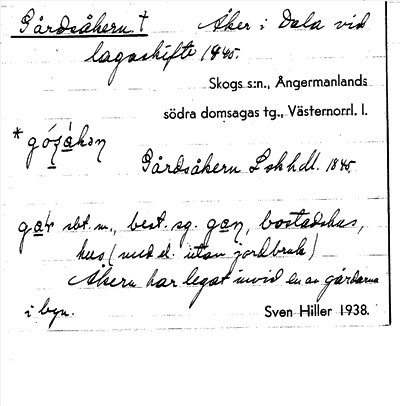 Gårdsåkern † Åker i Dala vid
lagaskifte 1845.
Skogs s:n., Ångermanlands
södra domsagas tg., Västernorrl. l.
Gårdsåkern Lskhdl. 1845
sbt. m., best. sg. bostadshus,
hus (med el. utan jordbruk)
Åkern har legat invid en av gårdarna
i byn.
Sven Hiller 1938.